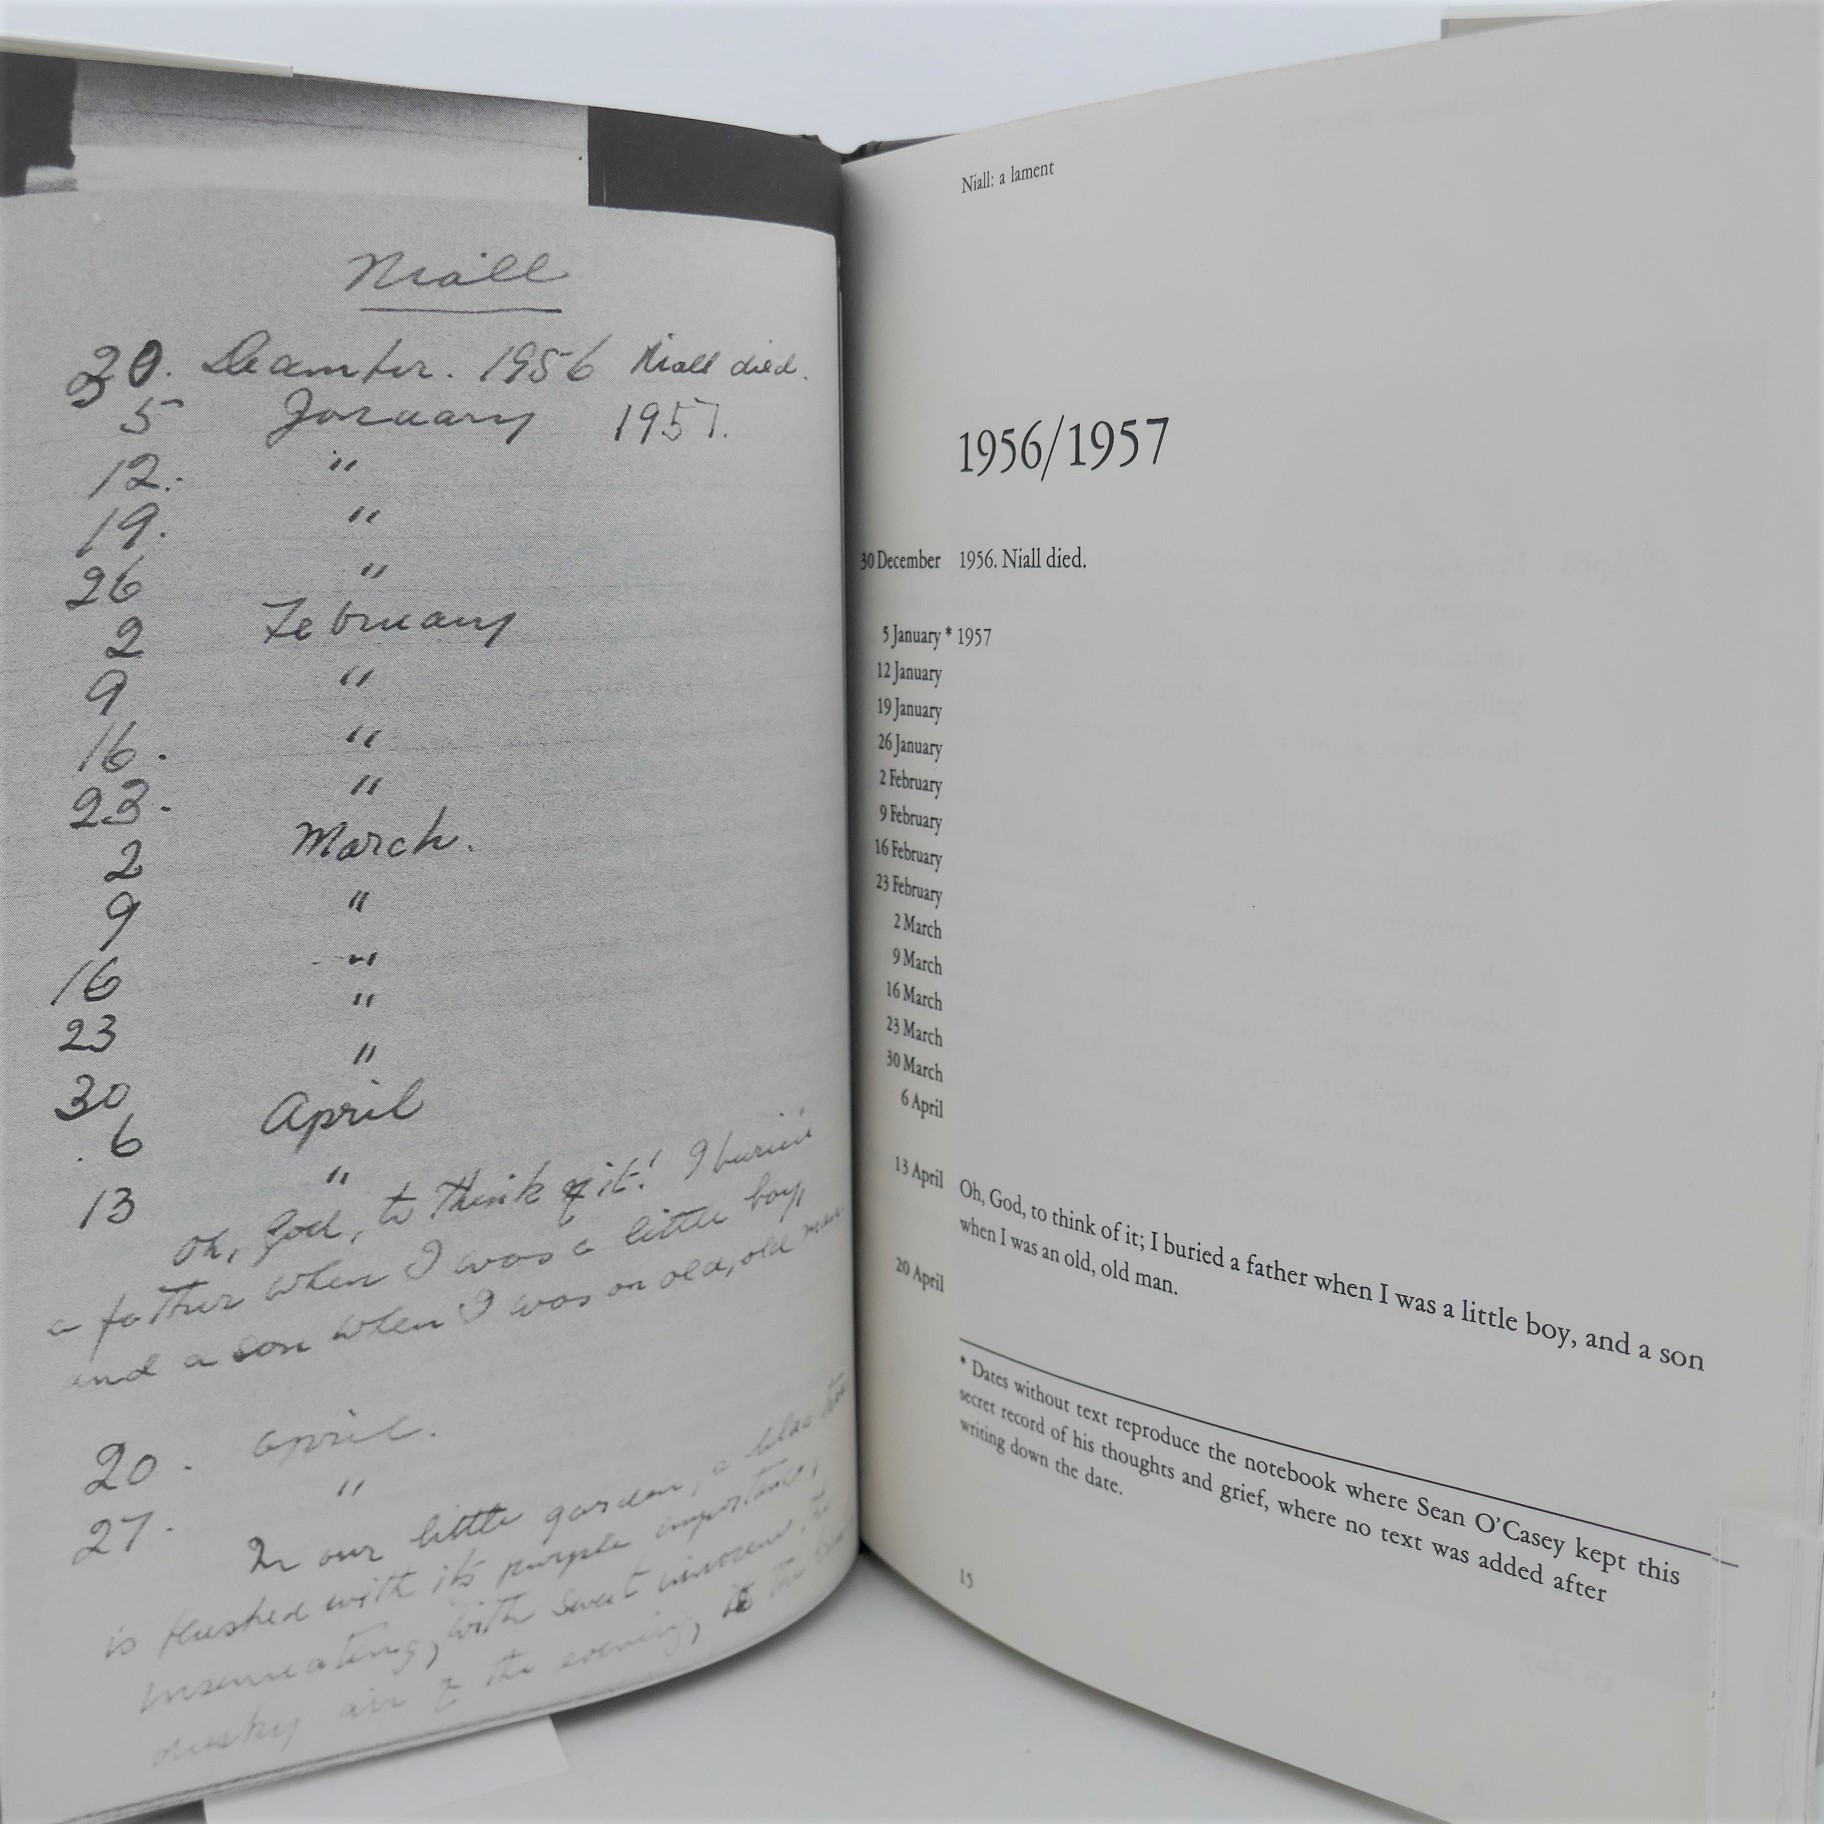 Niall
30. December. 1956 Niall died.
5 January 1957.
12. "
19. "
26 "
2 February
9 "
16. "
23. "
2 March.
9 "
16 "
23 "
30 "
6 April
13 "
Oh, God, to think of it! I buried
a father when I was a little boy,
and a son when I was an old, old man.
20. April.
27. "
In our little garden, a lilac tree
is flushed with its purple importance,
insinuating, with sweet innocence the
dusky air of the evening,
Niall: a lament
1956/1957
30 December 1956. Niall died.
5 January * 1957
12 January
19 January
26 January
2 February
9 February
16 February
23 February
2 March
9 March
16 March
23 March
30 March
6 April
13 April Oh, God, to think of it; I buried a father when I was a little boy, and a son
when I was an old, old man.
20 April
* Dates without text reproduce the notebook where Sean O'Casey kept this
secret record of his thoughts and grief, where no text was added after
writing down the date.
15